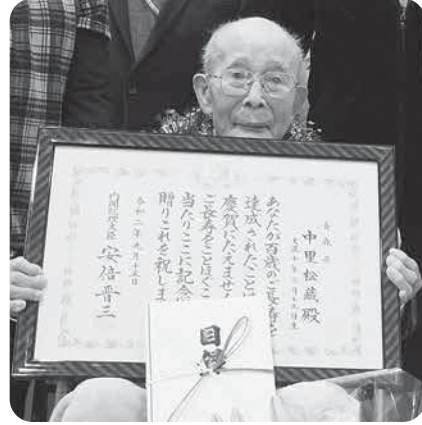 中里松蔵殿
あなたが百歳のご長寿を
達成されたことは
慶賀にたえません
ご長寿をことほぐこ
当たりここに記念
贈りこれを祝しま
令和二年九月十五日
内閣総理大臣 安倍晋三
目録